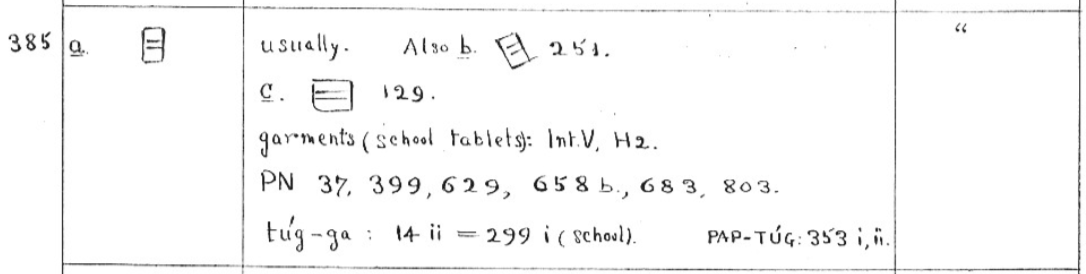 385 a. usually. Also b. 251. “
c. 129.
garments (school tablets): Int. V, H2.
PN 37, 399, 629, 658 b., 683, 803.
túg-ga : 14 ii = 299 i (school). PAP-TÚG: 353 i, ii.